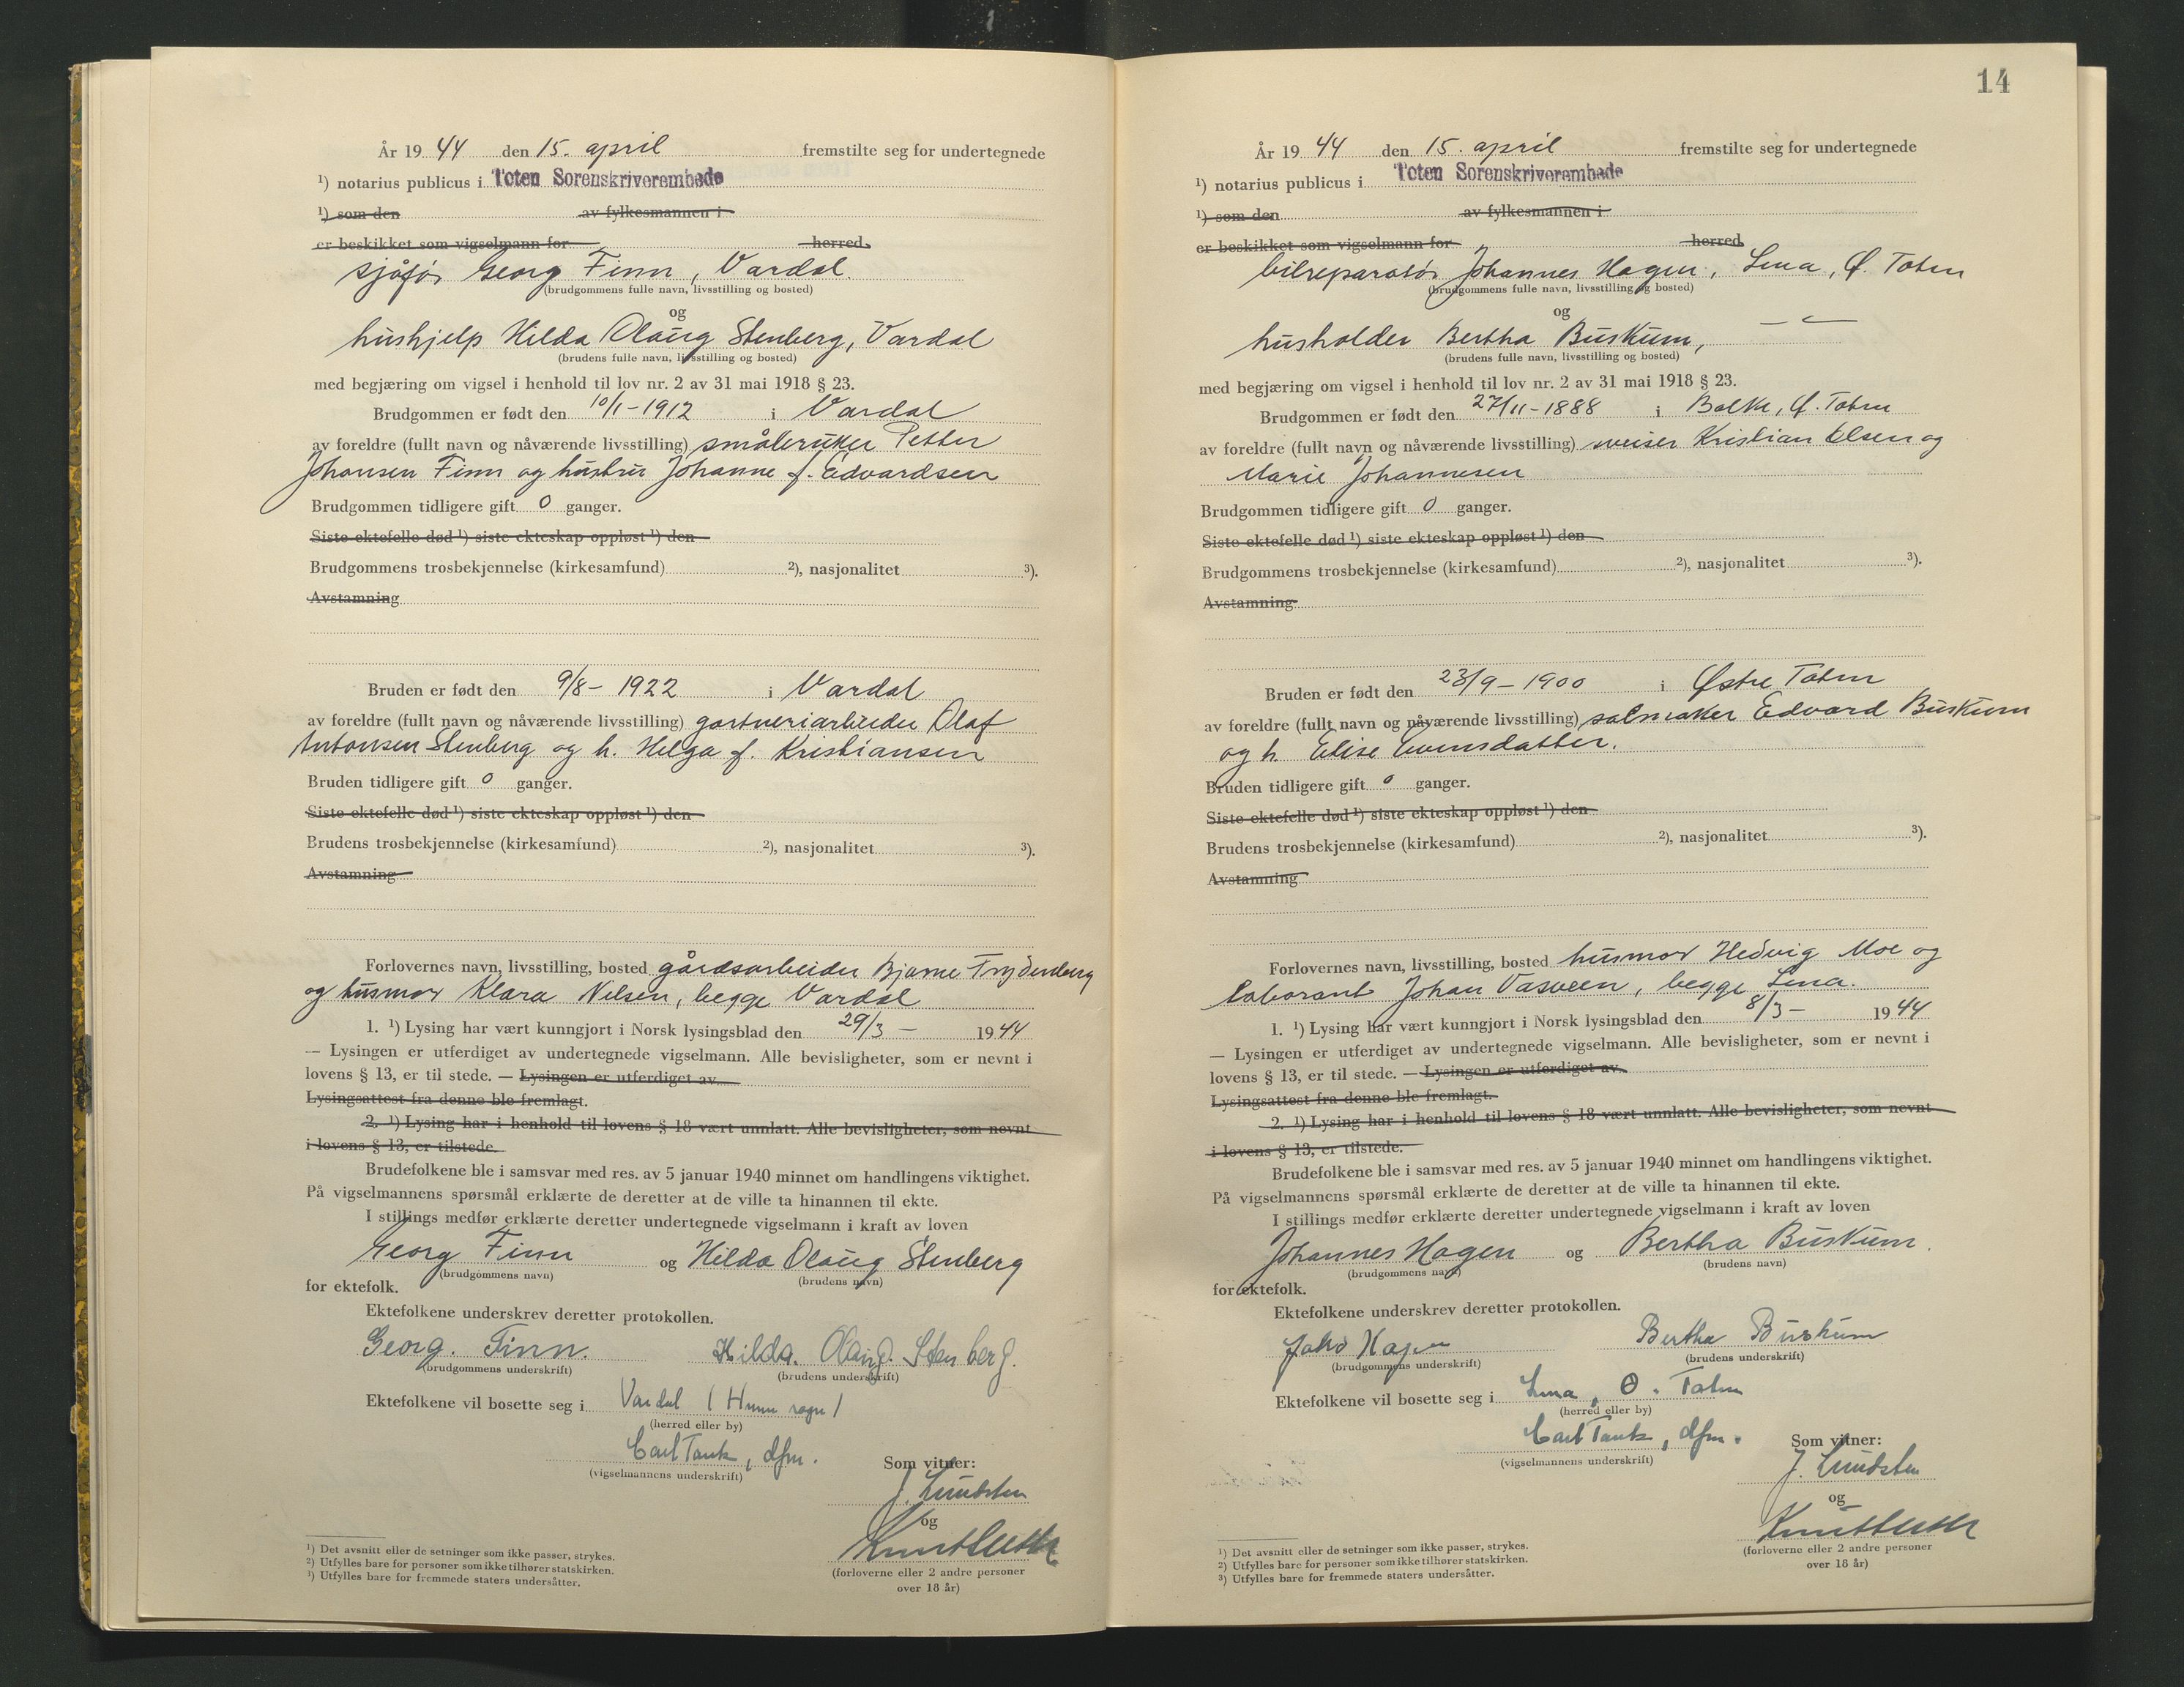 År 19 44 den 15. april fremstilte seg for undertegnede
¹) notarius publicus i Toten Sorenskriverembede
¹) som den av fylkesmannen i
er beskikket som vigselmann for herred
sjåfør Georg Finn, Vardal.
(brudgommens fulle navn, livsstilling og bosted)
og
hushjelp Hilda Olaug Stenberg, Vardal
(brudens fulle navn, livsstilling og bosted)
med begjæring om vigsel i henhold til lov nr. 2 av 31 mai 1918 § 23.
Brudgommen er født den 10/1-1912 i Vardal
av foreldre (fullt navn og nåværende livsstilling) småbruker Petter
Johansen Finn og hustru Johanne f. Edvardsen
Brudgommen tidligere gift 0 ganger.
Siste ektefelle død ¹) siste ekteskap oppløst ¹) den
Brudgommens trosbekjennelse (kirkesamfund) ²), nasjonalitet ³).
Avstamning
Bruden er født den 9/8- 1922 i Vardal
av foreldre (fullt navn og nåværende livsstilling) gartneriarbeider Olaf
Antonsen Stenberg og h. Helga f. Kristiansen
Bruden tidligere gift 0 ganger.
Siste ektefelle død ¹) siste ekteskap oppløst ¹) den
Brudens trosbekjennelse (kirkesamfund) ²), nasjonalitet ³).
Avstamning
Forlovernes navn, livsstilling, bosted gårdsarbeider Bjarne Frydenberg
og husmor Klara Nilsen, begge Vardal
1. ¹) Lysing har vært kunngjort i Norsk lysingsblad den 29/3 - 1944
— Lysingen er utferdiget av undertegnede vigselmann. Alle bevisligheter, som er nevnt i
lovens § 13, er til stede. — Lysingen er utferdiget av
Lysingsattest fra denne ble fremlagt.
2. ¹) Lysing har i henhold til lovens § 18 vært unnlatt. Alle bevisligheter, som nevnt
i lovens § 13, er tilstede.
Brudefolkene ble i samsvar med res. av 5 januar 1940 minnet om handlingens viktighet.
På vigselmannens spørsmål erklærte de deretter at de ville ta hinannen til ekte.
I stillings medfør erklærte deretter undertegnede vigselmann i kraft av loven
Georg Finn og Hilda Olaug Stenberg
(brudgommens navn) (brudens navn)
for ektefolk.
Ektefolkene underskrev deretter protokollen.
Georg. Finn. Hilda. Olaug. Stenberg.
(brudgommens underskrift) (brudens underskrift)
Ektefolkene vil bosette seg i Vardal (Hunn sogn)
(herred eller by)
Carl Tank, dfm.
(vigselmannens underskrift)
Som vitner:
J. Lundsten
og
(forloverne eller 2 andre personer
over 18 år)
¹) Det avsnitt eller de setninger som ikke passer, strykes.
²) Utfylles bare for personer som ikke tilhører statskirken.
³) Utfylles bare for fremmede staters undersåtter.
14
År 19 44 den 15. april fremstilte seg for undertegnede
¹) notarius publicus i Toten Sorenskriverembede
¹) som den av fylkesmannen i
er beskikket som vigselmann for herred
bilreparatør Johannes Hagen, Lena, Ø. Toten
(brudgommens fulle navn, livsstilling og bosted)
og
husholder Bertha Buskum, — " —
(brudens fulle navn, livsstilling og bosted)
med begjæring om vigsel i henhold til lov nr. 2 av 31 mai 1918 § 23.
Brudgommen er født den 27/11-1888 i Balke, Ø. Toten
av foreldre (fullt navn og nåværende livsstilling) sveiser Kristian Olsen og
Marie Johannesen
Brudgommen tidligere gift 0 ganger.
Siste ektefelle død ¹) siste ekteskap oppløst ¹) den
Brudgommens trosbekjennelse (kirkesamfund) ²), nasjonalitet ³).
Avstamning
Bruden er født den 23/9-1900 i Østre Toten
av foreldre (fullt navn og nåværende livsstilling) salmaker Edvard Buskum
og h. Elise Evensdatter.
Bruden tidligere gift 0 ganger.
Siste ektefelle død ¹) siste ekteskap oppløst ¹) den
Brudens trosbekjennelse (kirkesamfund) ²), nasjonalitet ³).
Avstamning
Forlovernes navn, livsstilling, bosted husmor Hedvig Moe og
laborant Johan Vasveen, begge Lena.
1. ¹) Lysing har vært kunngjort i Norsk lysingsblad den 8/3 - 1944
— Lysingen er utferdiget av undertegnede vigselmann. Alle bevisligheter, som er nevnt i
lovens § 13, er til stede. — Lysingen er utferdiget av
Lysingsattest fra denne ble fremlagt.
2. ¹) Lysing har i henhold til lovens § 18 vært unnlatt. Alle bevisligheter, som nevnt
i lovens § 13, er tilstede.
Brudefolkene ble i samsvar med res. av 5 januar 1940 minnet om handlingens viktighet.
På vigselmannens spørsmål erklærte de deretter at de ville ta hinannen til ekte.
I stillings medfør erklærte deretter undertegnede vigselmann i kraft av loven
Johannes Hagen og Bertha Buskum.
(brudgommens navn) (brudens navn)
for ektefolk.
Ektefolkene underskrev deretter protokollen.
Johs Hagen Bertha Buskum
(brudgommens underskrift) (brudens underskrift)
Ektefolkene vil bosette seg i Lena, Ø. Toten
(herred eller by)
Carl Tank, dfm.
(vigselmannens underskrift)
Som vitner:
J. Lundsten
og
(forloverne eller 2 andre personer
over 18 år)
¹) Det avsnitt eller de setninger som ikke passer, strykes.
²) Utfylles bare for personer som ikke tilhører statskirken.
³) Utfylles bare for fremmede staters undersåtter.